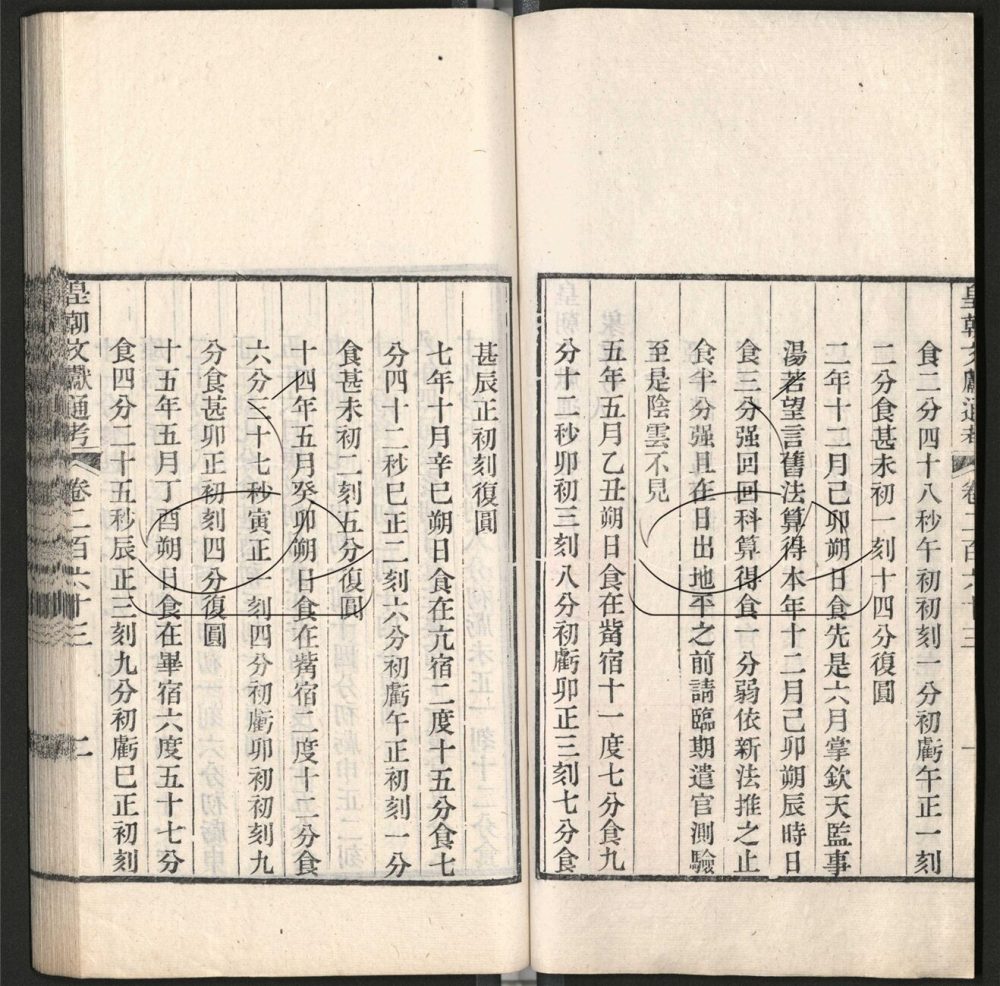 皇朝文獻通考 卷二百六十三 一
食二分四十八秒午初初刻一分初虧午正一刻
二分食甚未初一刻十四分復圓
二年十二月己卯朔日食先是六月掌欽天監事
湯若望言舊法算得本年十二月己卯朔辰時日
食三分强回回科算得食一分弱依新法推之止
食半分强且在日出地平之前請臨期遣官測驗
至是陰雲不見
五年五月乙丑朔日食在觜宿十一度七分食九
分十二秒卯初三刻八分初虧卯正三刻七分食
甚辰正初刻復圓
七年十月辛巳朔日食在亢宿二度十五分食七
分四十二秒巳正二刻六分初虧午正初刻一分
食甚未初二刻五分復圓
十四年五月癸卯朔日食在觜宿二度十二分食
六分三十七秒寅正一刻四分初虧卯初初刻九
分食甚卯正初刻四分復圓
十五年五月丁酉朔日食在畢宿六度五十七分
食四分二十五秒辰正三刻九分初虧巳正初刻
皇朝文獻通考 卷二百六十三 二